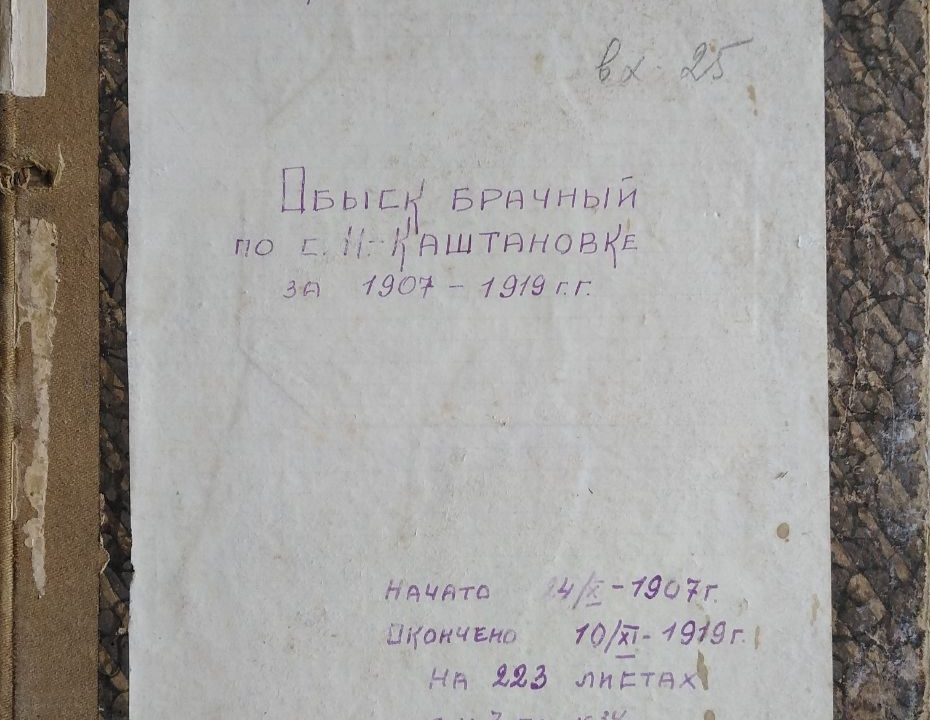 вх. 25
Обыск брачный
по с. Н-Каштановке
за 1907 - 1919 г.г.
Начато 24/X - 1907 г.
Окончено 10/XI - 1919 г.
на 223 листах